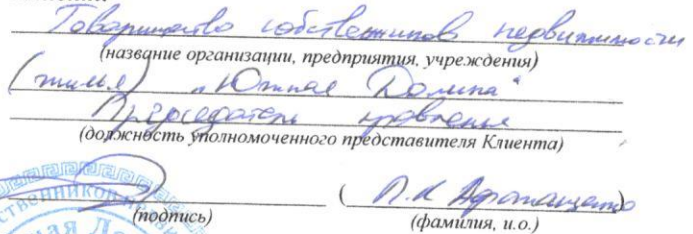 Товарищество собственников недвижимости
(название организации, предприятия, учреждения)
(жилья) „Южная Долина"
Председатель правления
(должность уполномоченного представителя Клиента)
(подпись)
(фамилия, и.о.)